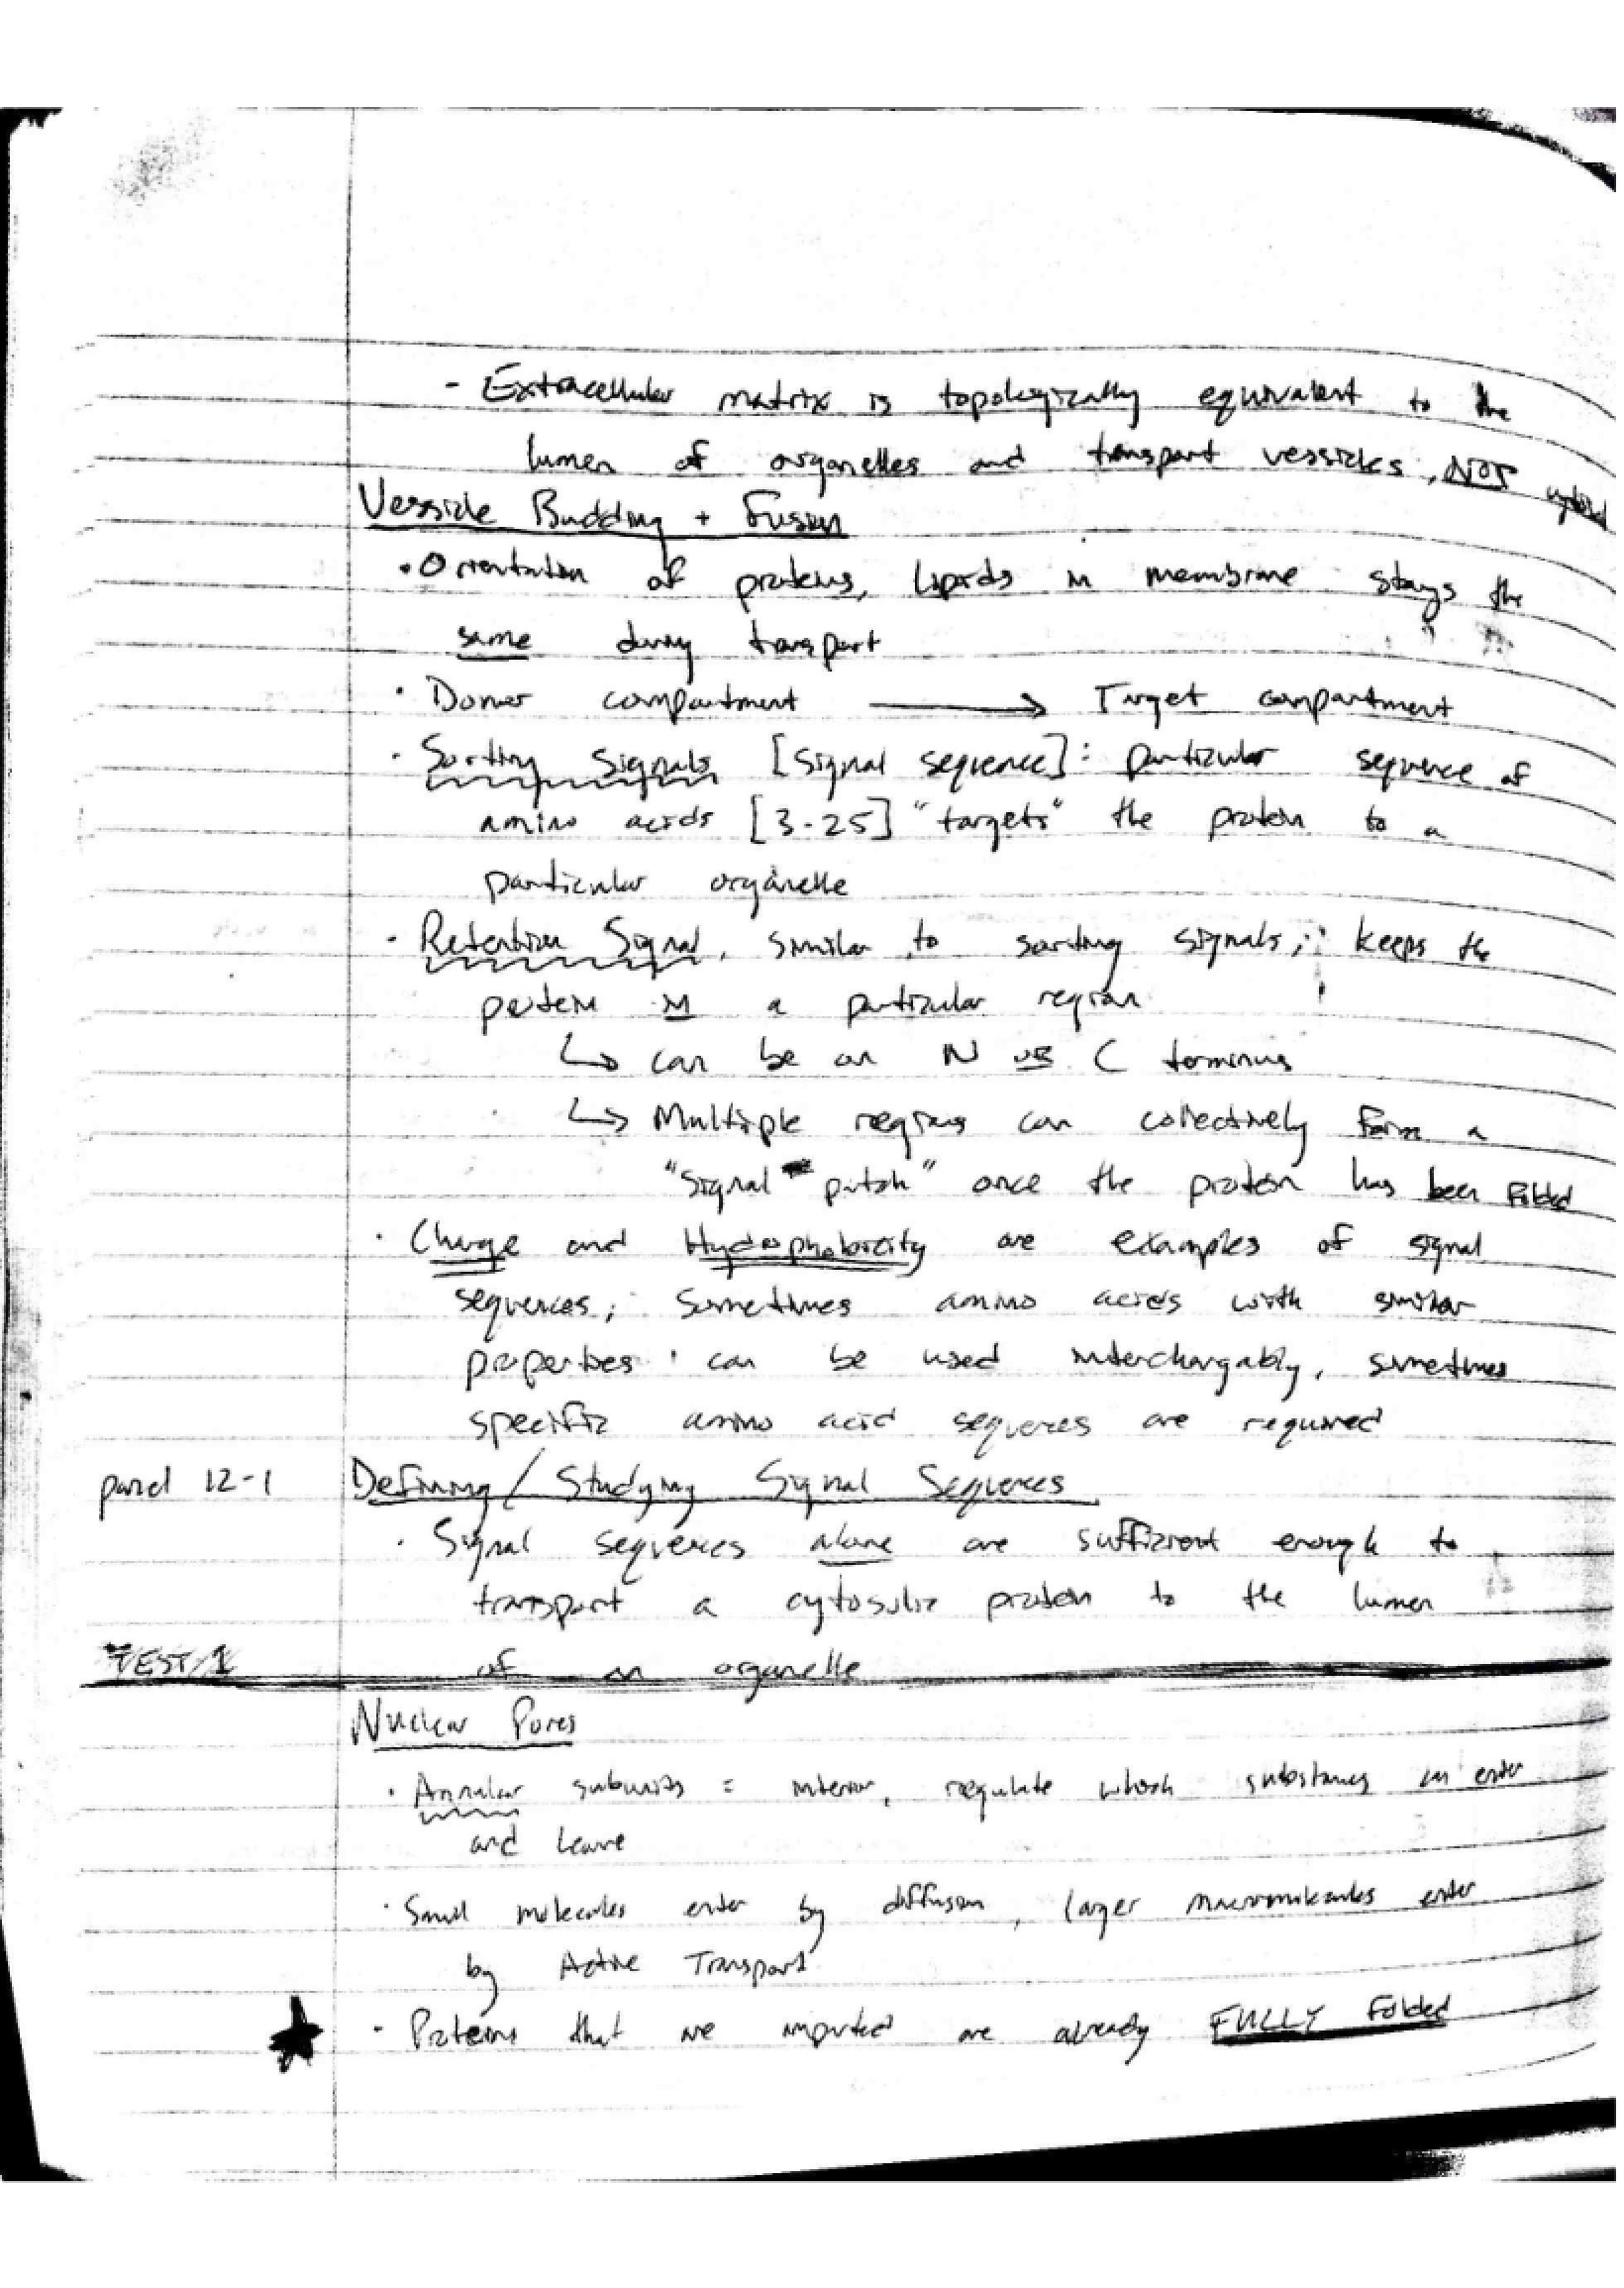 - Extracellular matrix is topologically equivalent to the
lumen of organelles and transport vessicles, NOT cytosol
Vessicle Budding + Fusion
• Orientation of proteins, lipids in membrane stays the
same during transport
• Donor compartment → Target compartment
• Sorting Signals [Signal sequence]: particular sequence of
amino acids [3-25] "targets" the protein to a
particular organelle
• Retention Signal, similar to sorting signals; keeps the
protein in a particular region
↳ can be on N or C terminus
↳ Multiple regions can collectively form a
"signal patch" once the protein has been folded
• Charge and Hydrophobicity are examples of signal
sequences; sometimes amino acids with similar
properties can be used interchangably, sometimes
specific amino acid sequences are required
panel 12-1 Defining / Studying Signal Sequences
• Signal sequences alone are sufficient enough to
transport a cytosolic protein to the lumen
TEST 1 of an organelle
Nuclear Pores
• Annular subunits = interior, regulate which substances can enter
and leave
• Small molecules enter by diffusion, larger macromolecules enter
by Active Transport
★ • Proteins that are imported are already FULLY Folded